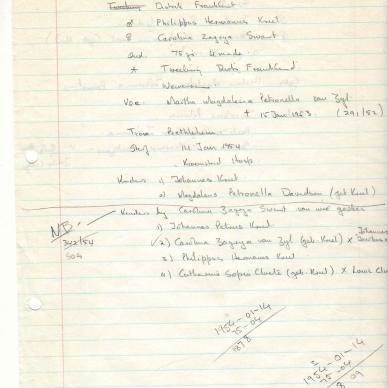 Distrik Frankfort
♂ Philippus Hermanus Knel
♀ Carolina Zagaya Swart
oud 75 jr 4 mnde
* Tweeling Distr Frankfort
Wewenaar
Vor. Martha Magdalena Petronella van Zyl
+ 15 Jan 1953 (291/52)
Trou Bethlehem
Sterf 14 Jan 1954
Kroonstad Hosp
Kinders 1) Johannes Knel
2) Magdalena Petronella Davidson (geb Knel)
NB. Kinders by Carolina Zagaya Swart van wie
342/54
SOG
1) Johannes Petrus Knel
2) Carolina Zagaya van Zyl (geb. Knel) x Johannes Jacobus
3) Philippus Hermanus Knel
4) Catharina Sophia Cloete (geb. Knel) x Louw Clo
1954-01-14
75-04
1954-01-14
75-04